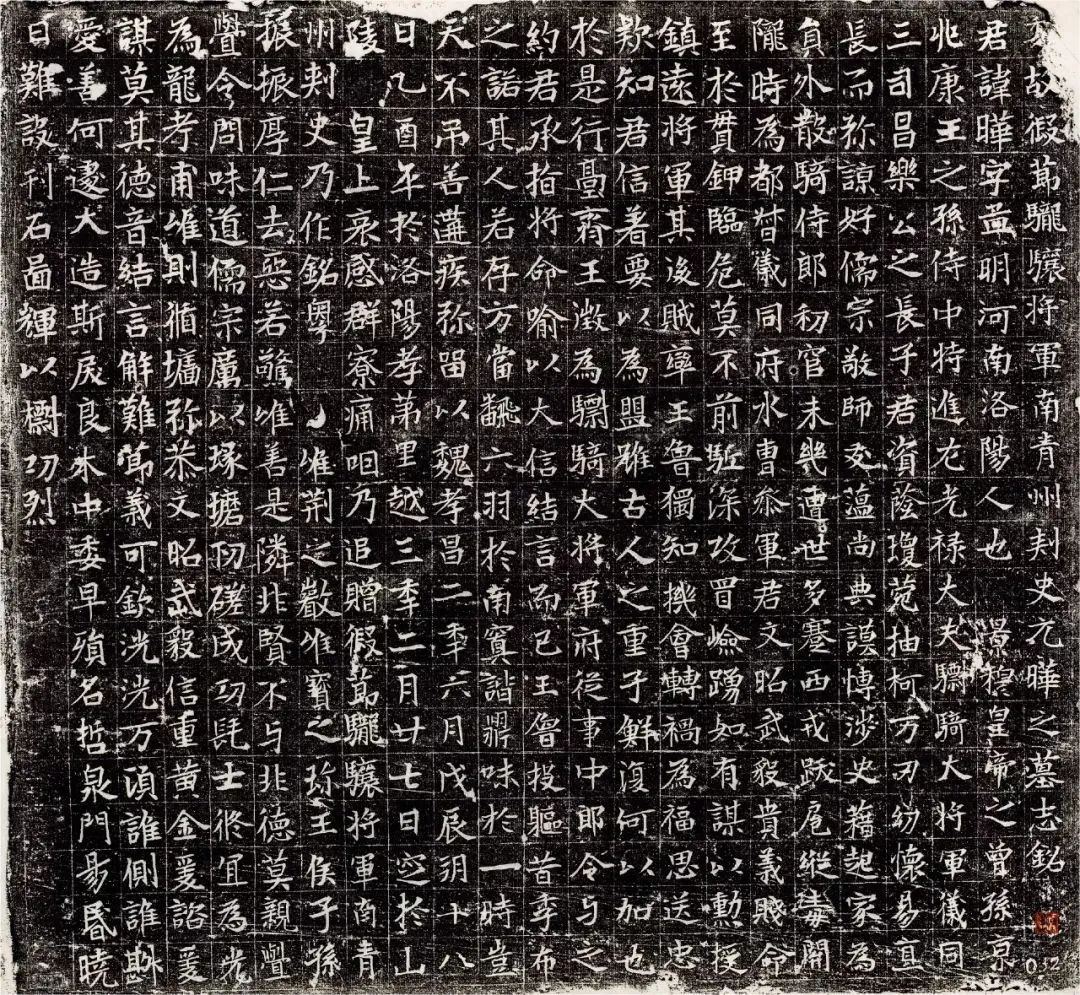 魏故假節驪驤將軍南青州刾史元曄之墓志銘
君諱曄字孟明河南洛陽人也 景穆皇帝之曾孫京
兆康王之孫侍中特進左光禄大夫驃騎大將軍儀同
三司昌樂公之長子君資蔭瓊苑抽柯万刃紉懷易直
長而弥諒好儒宗敬師友蕰尚典謨慱涉史藉起家為
負外散騎侍郎初官未幾遭世多蹇西戎跋扈縱毒開
隴時為都督儀同府水曹叅軍君文昭武毅貴義賤命
至於貫鉀臨危莫不前駈深攻冒嶮踴如有謀以勳授
鎮遠將軍其後賊寧王魯獨知機會轉禍為福思送忠
欵知君信著要以為盟雖古人之重子鮮復何以加也
於是行臺齊王澂為驃騎大將軍府從事中郎令与之
約君承指將命喻以大信結言而已王魯投軀昔季布
之諾其人若存方當翻六羽於南冥諧鼎味於一時豈
天不吊善遘疾弥留以魏孝昌二秊六月戊辰朔十八
日乙酉年於洛陽孝弟里越三秊二月廿七日窆於山
陵 皇上哀感群寮痛咽乃追贈假節驪驤將軍南青
州刾史乃作銘粤 惟荆之巚惟寳之珎王侯子孫
振振厚仁去惡若驚唯善是隣非賢不与非德莫親亹
亹令問味道儒宗厲以琢磨罔磋成功髦士攸宜為光
為龍孝甫雄則循墻弥恭文昭武毅信重黄金爰諮爰
謀莫其德音結言解難節義可欽洸洸万頃誰側誰斟
愛善何遽大造斯戾良木中委早殞名哲泉門易昏曉
日難設刊石啚輝以櫩功烈
032